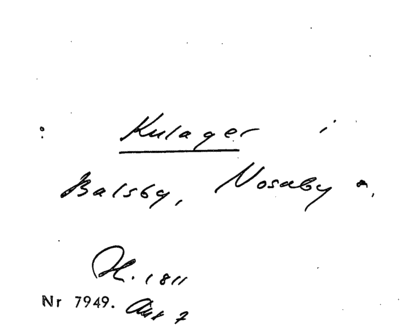 Kulager i
Balsby, Nosaby s.
H. 1811
Nr 7949.